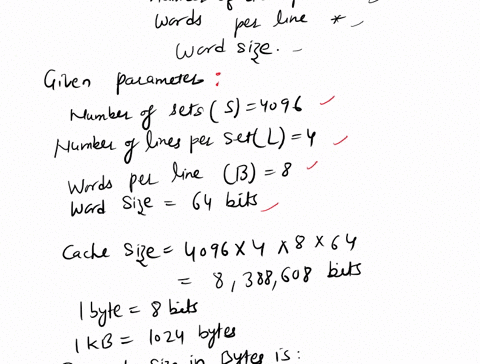 Words per line *
Word size.
Given parameter:
Number of sets (S) = 4096
Number of lines per set (L) = 4
Words per line (B) = 8
Word Size = 64 bits
Cache Size = 4096 X 4 X 8 X 64
= 8,388,608 bits
1 byte = 8 bits
1 KB = 1024 bytes
size in Bytes is: